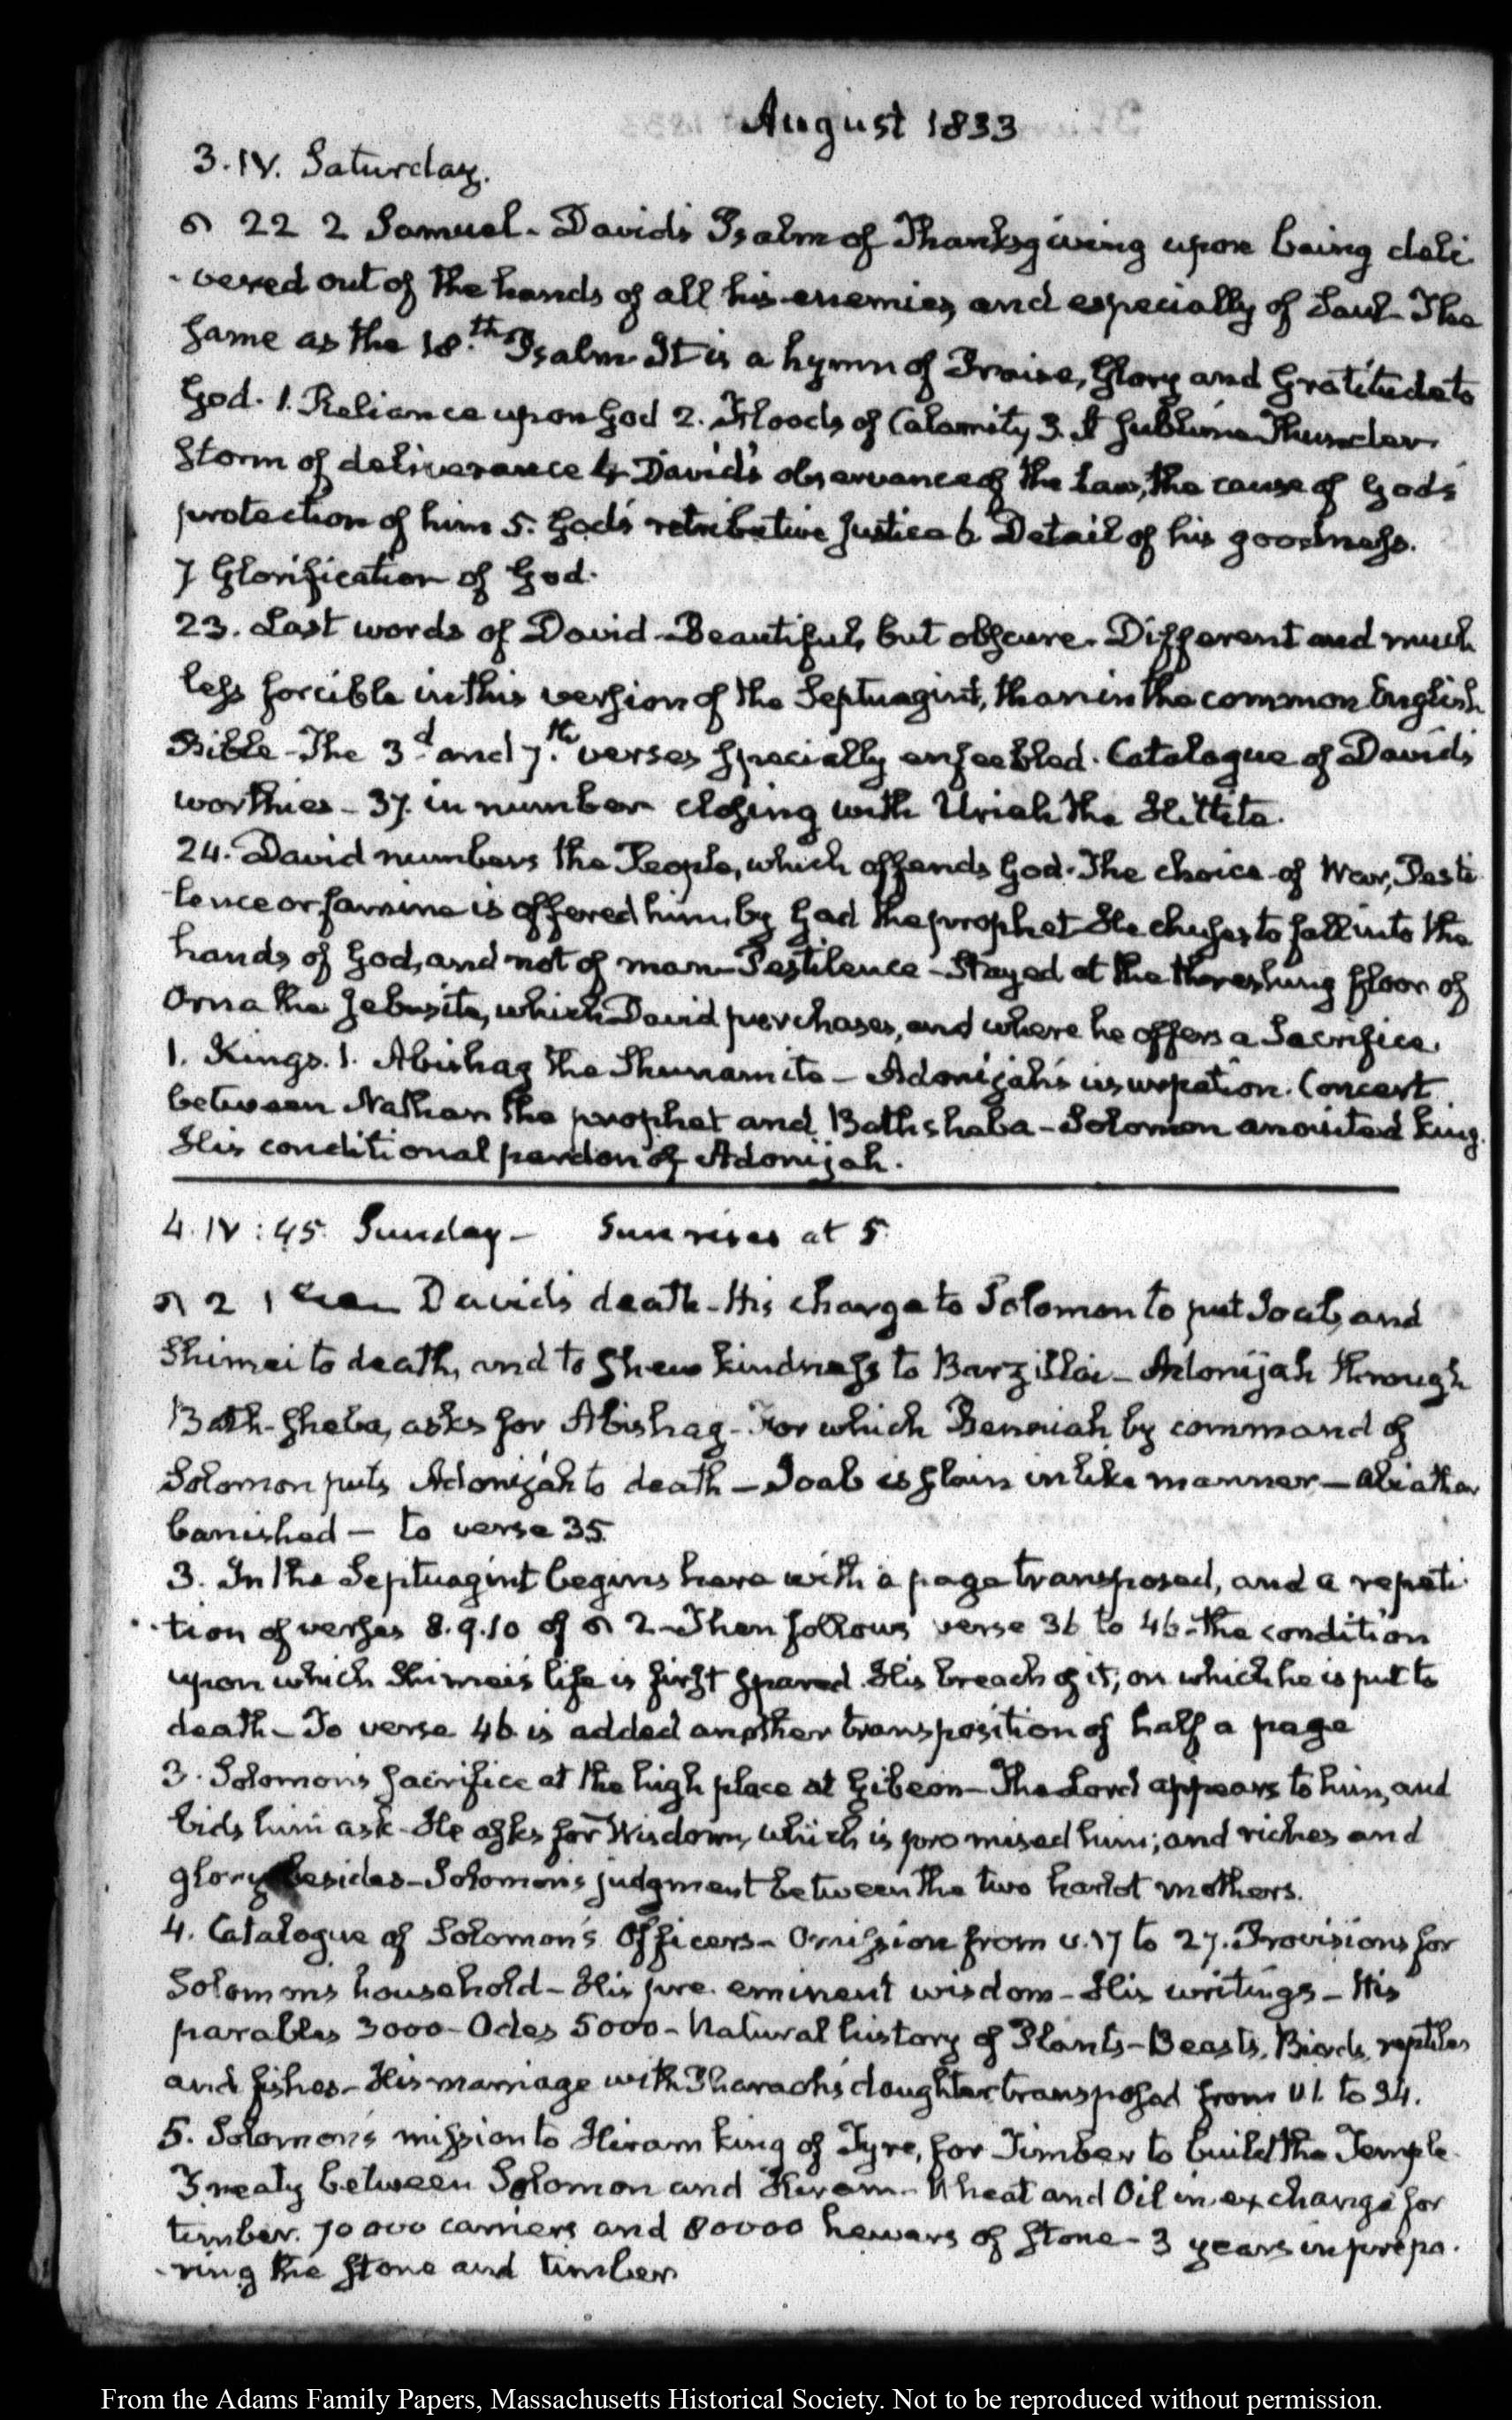 August 1833
3. IV. Saturday.
22 2 Samuel - David's Psalm of Thanksgiving upon being deli
-vered out of the hands of all his enemies, and especially of Saul - The
same as the 18.th Psalm It is a hymn of Praise, Glory and Gratitude to
God. 1. Reliance upon God 2. Floods of Calamity, 3. A sublime Thunder
storm of deliverance 4 David's observance of the Law, the cause of God's
protection of him 5. God's retributive Justice 6 Detail of his goodness.
7 Glorification of God.
23. Last words of David - Beautiful, but obscure. Different and much
less forcible in this version of the Septuagint, than in the common English
Bible - The 3d and 7.th verses specially enfeebled. Catalogue of David's
worthies - 37. in number closing with Uriah the Hittite.
24. David numbers the People, which offends God. The choice of War, Pesti
-lence or famine is offered him, by Gad the prophet He chuses to fall into the
hands of God, and not of man - Pestilence - Stayed at the threshing floor of
Orna the Jebusite, which David purchases, and where he offers a Sacrifice.
1. Kings. 1. Abishag the Shunamite - Adonijah's usurpation. Concert
between Nathan the prophet and Bathsheba - Solomon anointed king.
His conditional pardon of Adonijah.
4. IV: 45. Sunday - Sun rises at 5.
2 1 David's death - His charge to Solomon to put Joab, and
Shimei to death, and to shew kindness to Barzillai - Adonijah through
Bath-sheba, asks for Abishag - For which Benaiah by command of
Solomon puts Adonijah to death - Joab is slain in like manner - Abiathar
banished - to verse 35
3. In the Septuagint begins here with a page transposed, and a repeti
-tion of verses 8. 9. 10 of 2 - Then follows verse 36 to 46 - the condition
upon which Shimei's life is first spared. His breach of it; on which he is put to
death - To verse 46 is added another transposition of half a page
3. Solomon's sacrifice at the high place at Gibeon - The Lord appears to him, and
bids him ask - He asks for Wisdom, which is promised him; and riches and
glory besides - Solomon's judgment between the two harlot mothers.
4. Catalogue of Solomon's Officers - Omission from v. 17 to 27. Provisions for
Solomons household - His pre eminent wisdom - His writings - His
parables 3000 - Odes 5000 - Natural history of Plants - Beasts, Birds, reptiles
and fishes - His marriage with Pharaoh's daughter transposed from v 1. to 34.
5. Solomon's mission to Hiram king of Tyre, for Timber to build the Temple
Treaty between Solomon and Hiram - Wheat and Oil in exchange for
timber. 70000 carriers and 80000 hewers of stone - 3 years in prepa
-ring the stone and timber
From the Adams Family Papers, Massachusetts Historical Society. Not to be reproduced without permission.